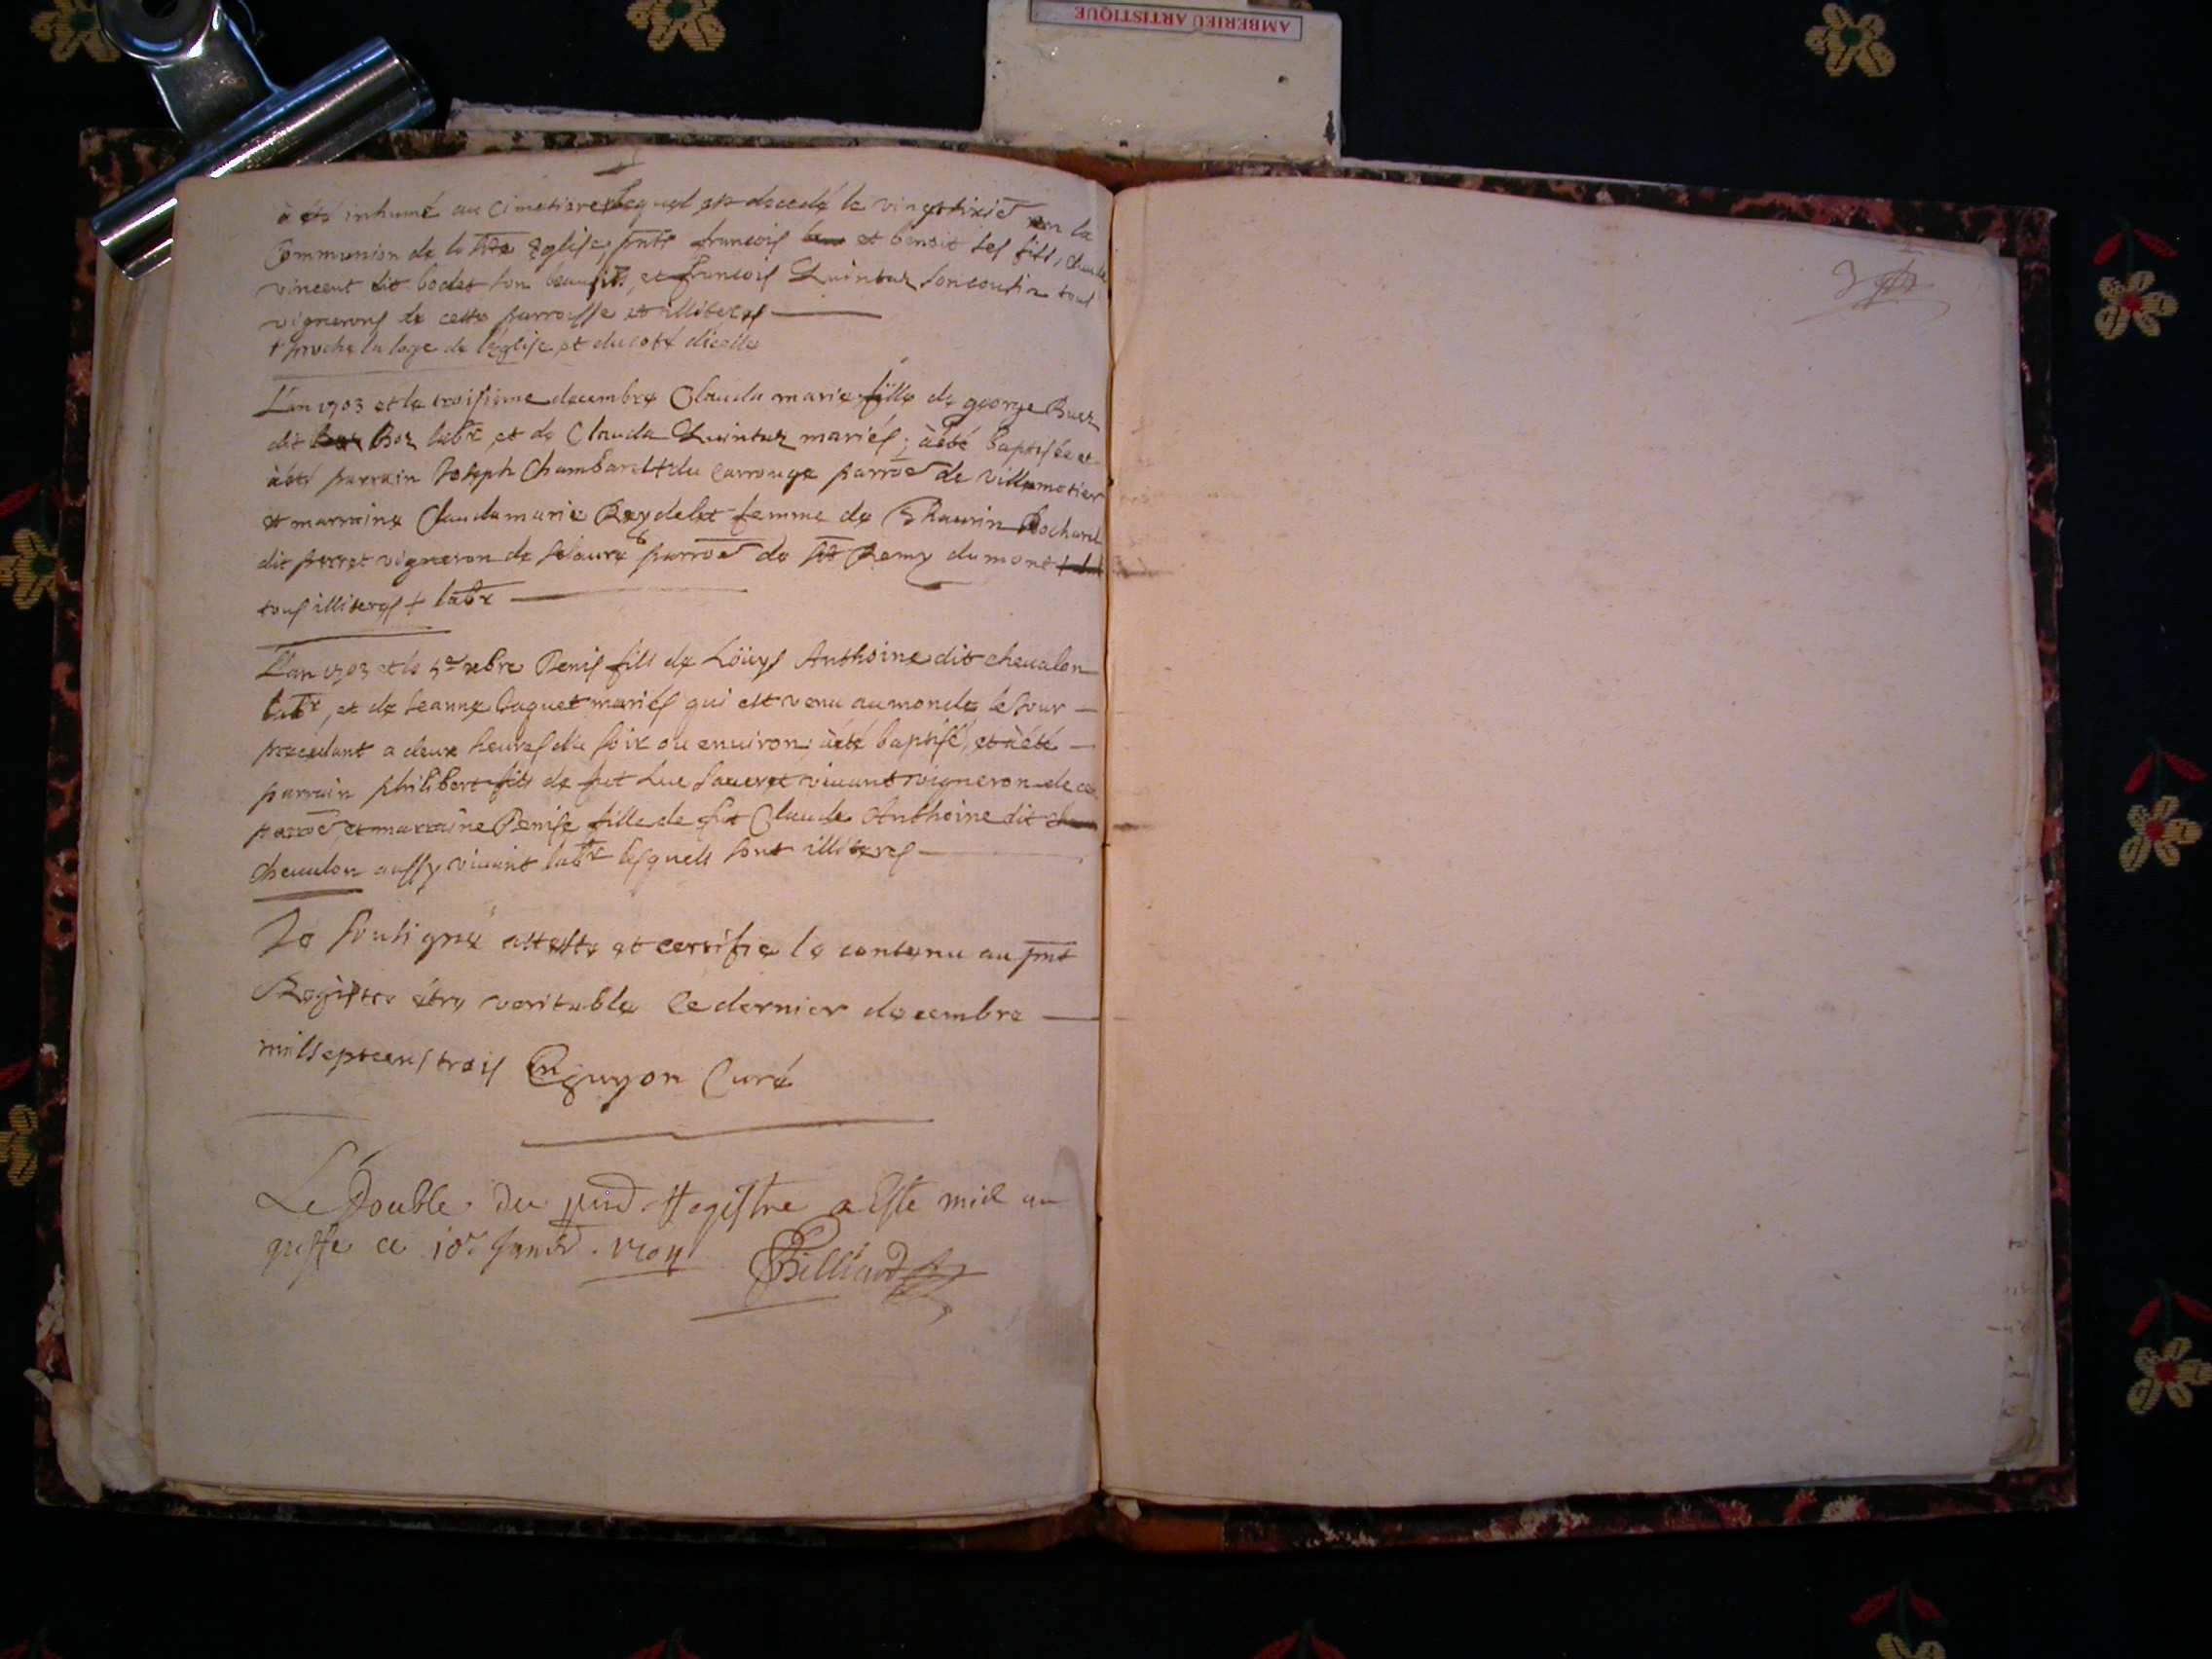 AMBERIEU ARTISTIQUE
à été inhumé au Cimetiere + lequel est decedé le vingtsixie en la
Communion de la ste Eglise, pnts francois et benoit ses fils, claude
vincent dit bodet son beaufils, et francois Quintuz son cousin tous
vignerons de cette parroisse et illiteres
+ proche la loge de l'eglise et du coté d'icelle
L'an 1703 et le troisieme decembre Clauda marie fille de george Buez
dit Boz labr et de Clauda Quintuz mariés; à été baptisée et
à été parrain Joseph Chambard + du carrouge parroe de villemotier
et marraine Claudamarie Reydelet femme de Thaurin Bochard
dit perret vigneron de parroe de st Remy dumont
tous illiteres + labr
L'an 1703 et le Xbre Denis fils de Löuys Anthoine dit cheualon
labr, et de Jeanne buguet mariés qui est venu au monde le jour
precedant a deux heures du soir ou enuiron; à été baptisé, et à été
parrain philibert fils de fut Luc vivant vigneron de ce
parroe et marraine Denise fille de fut Claude Anthoine dit
cheualon aussy vivant labr lesquels sont illiteres
Je sousigné atteste et certifie le contenu au pnt
Registre étre veritable le dernier decembre
mil sept cens trois Guyon Curé
Le Double du pnt Registre a Esté mis au
greffe ce 10e Janv. 1704 Billiard
3